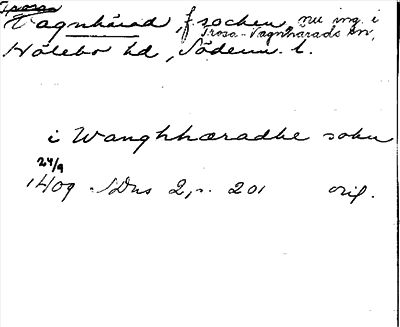 Trosa
Vagnhärad, f. socken, nu ing. i
Trosa-Vagnhärads sn,
Hölebo hd, Söderm. l.
i Wanghhæradhe sokn
24/9
1409 SDns 2, s. 201 orig.